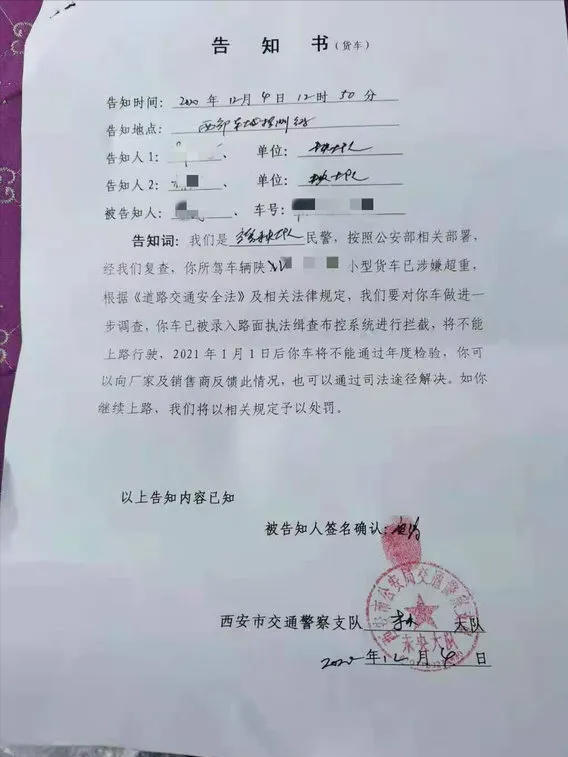 告知书(货车)
告知时间：2020年12月4日12时50分
告知地点：西部车城检测站
告知人1：、单位：
告知人2：、单位：
被告知人：、车号：
告知词：我们是民警，按照公安部相关部署，
经我们复查，你所驾车辆陕小型货车已涉嫌超重，
根据《道路交通安全法》及相关法律规定，我们要对你车做进一
步调查，你车已被录入路面执法缉查布控系统进行拦截，将不能
上路行驶，2021年1月1日后你车将不能通过年度检验，你可
以向厂家及销售商反馈此情况，也可以通过司法途径解决。如你
继续上路，我们将以相关规定予以处罚。
以上告知内容已知
被告知人签名确认：
西安市公安局交通警察支队
未央大队
西安市交通警察支队大队
2020年12月4日